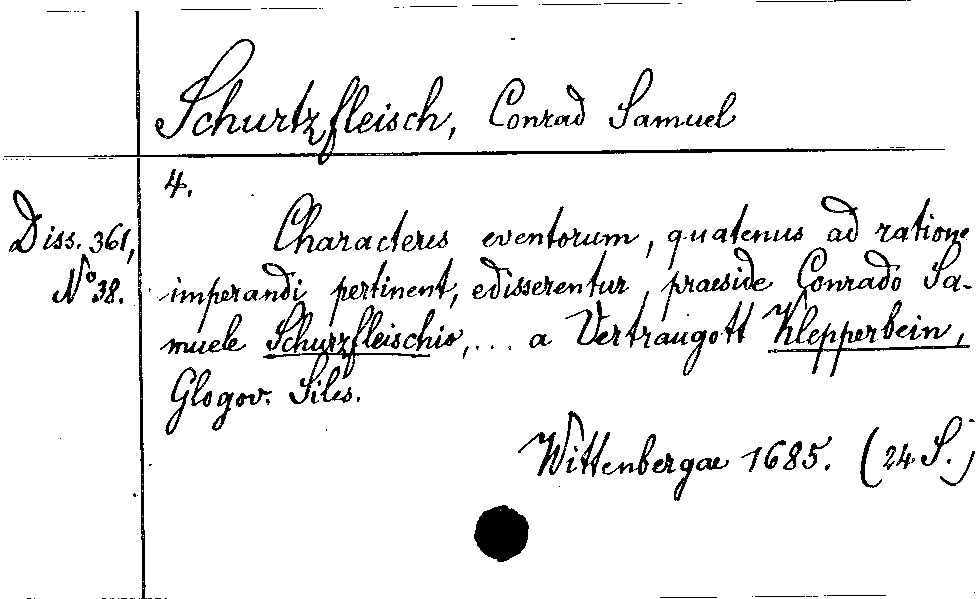 Schurtzfleisch, Conrad Samuel
4.
Diss. 361,
No 38.
Characteres eventorum, quatenus ad ratione
imperandi pertinent, edisserentur, praeside Conrado Sa-
muele Schurzfleischio, ... a Vertraugott Klepperbein,
Glogov. Siles.
Wittenbergae 1685. (24 S.)